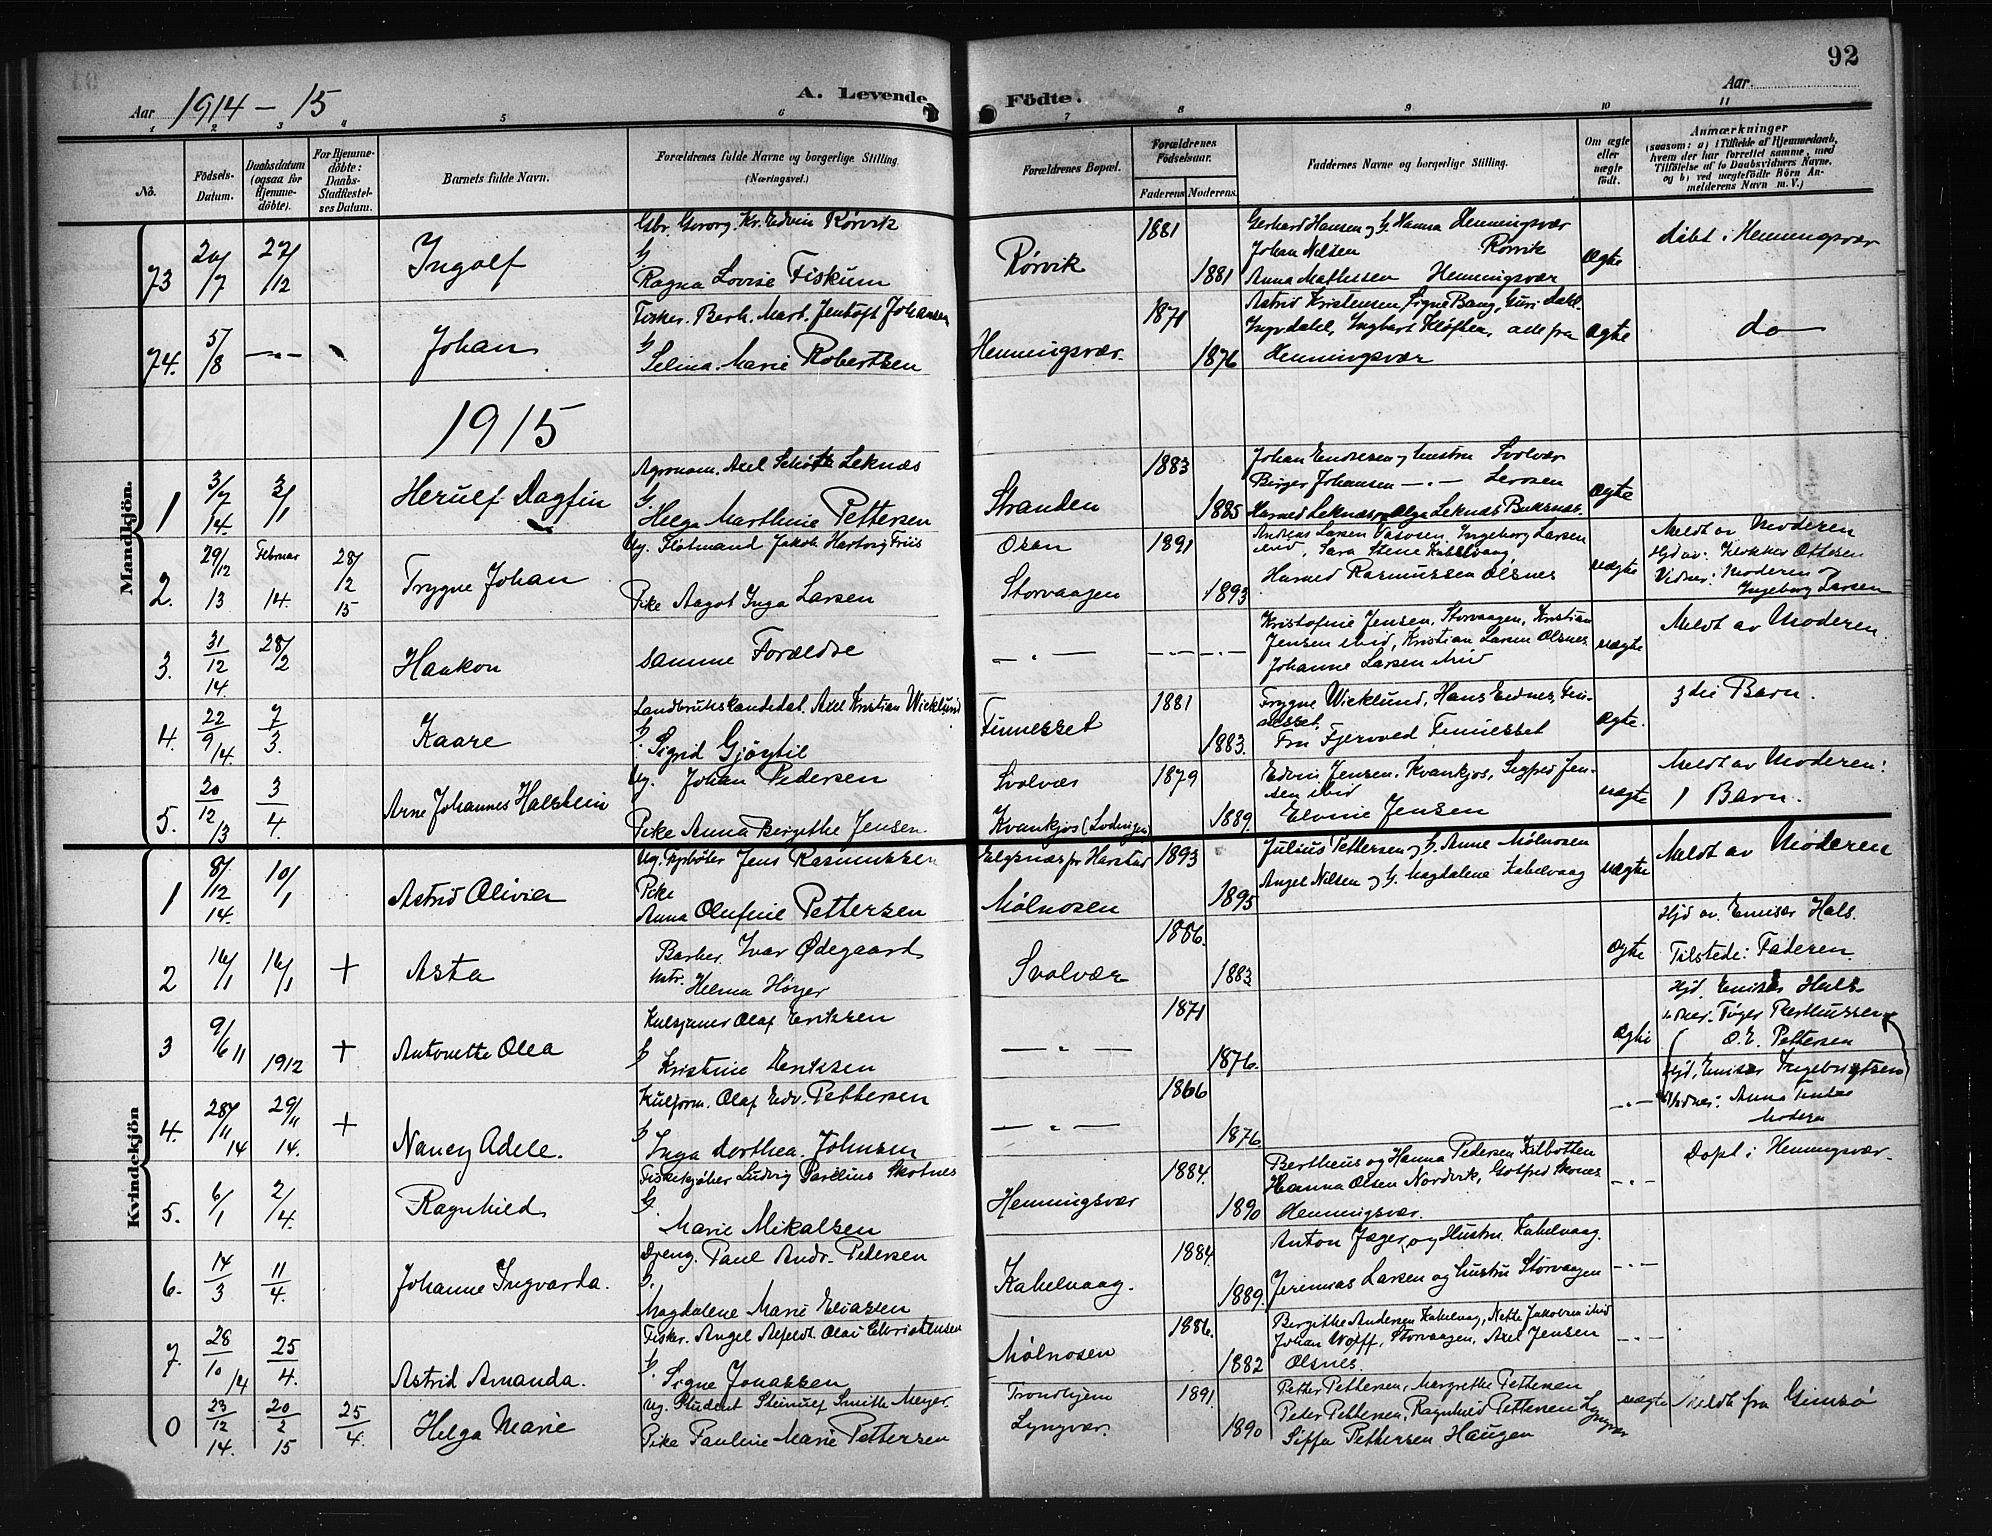 92
Aar 1914 - 15
A. Levende Födte.
Aar
1 2 3 4 5 6 7 8 9 10 11
No.
Födsels-Datum.
Daabsdatum (ogsaa for Hjemmedöbte).
For Hjemmedöbte: Daabs-Stadfæstelses Datum.
Barnets fulde Navn.
Forældrenes fulde Navne og borgerlige Stilling. (Næringsvei.)
Forældrenes Bopæl.
Forældrenes Födselsaar.
Faderens Moderens.
Faddernes Navne og borgerlige Stilling.
Om ægte eller uægte födt.
Anmærkninger
(saasom: a) i Tilfælde af Hjemmedaab, hvem der har forrettet samme, med Tilföielse af to Daabsvidners Navne. og b) ved uægtefödte Börn Anmelderens Navn m. V.)
Mandkjön.
73 20/7 27/12 Ingolf
Gbr. Kr. Edvin Rørvik
g
Ragna Lovise Fiskum
Rørvik 1881 1881
Gerhard Hansen og g. Hanna Henningsvær
Johan Nilsen Rørvik
Anna Mathissen Henningsvær
ægte
døbt i Henningsvær
74. 5/8 —"— Johan
Fisker. Berh. Mart. Jentoft Johansen
g
Selina Marie Robertsen
Henningsvær. 1871 1876
Astrid Kristensen, Signe Bang, Guri Dahl
Ingvdahl, Ingbart Kløften, alle fra
Henningsvær
ægte
do
1915
1 3/7 14. 3/1 Herulf Dagfin
Agronom. Axel Schøtt Leknæs
g.
Helga Marthinie Pettersen
Stranden 1883 1885
Johan Endresen og hustru Svolvær
Birger Johansen —"— Lerosen
Harald Leknæs og Olga Leknæs Buksnæs
ægte
2. 29/12 13 Februar 14. 28/2 15 Trygve Johan
Ug. Jakob Hartvig Friis
Pike Aagot Inga Larsen
Osan
Storvaagen 1891 1893
Andreas Larsen Ingeborg Larsen
ibid, Sara Stene Kabelvaag
Harald Rasmussen Olsnes
uægte
Meldt av Moderen
Hjd av: Klokker Ottesen
Vidner: Moderen og
Ingeborg Larsen
3. 31/12 14. 28/2 Haakon
samme Forældre
—"— —"—
Kristofine Jensen, Storvaagen, Kristian
Jensen ibid, Kristian Larsen Olsnes
Johanne Larsen ibid
uægte
Meldt av Moderen.
4. 22/9 14. 7/3. Kaare
Landbrukskandidat. Axel Kristian Wicklund
g.
Sigrid Gjørtil
Finnesset 1881 1883.
Trygve Wicklund, Hans Eidnes, Finnesset,
Fru Fjervoll Finnesset
ægte.
3 die Barn.
5. 20/12 13 3/4. Arne Johannes Halstein
Ug. Johan Pedersen
Pike Anna Birgithe Jensen
Svolvær
Kvankjos (Lødingen) 1879 1889.
Edvin Jensen, Kvankjos, Sigfrid Jensen ibid
Elvine Jensen
uægte
Meldt av Moderen:
1 Barn.
Kvindekjön
1 8/12 14. 10/1 Astrid Olivia
Ug. Jens Rasmussen
Pike
Anna Olufine Pettersen
Elgsnæs pr Harstad
Mølnosen 1893 1895
Julius Pettersen og g. Anne Mølnosen
Angel Nilsen og g. Magdalene Kabelvaag
uægte
Meldt av Moderen
2 14/1 16/1 + Asta
Barber. Ivar Ødegaard
htr. Helma Høyer
Svolvær 1886. 1883
ægte
Hjd av. Emisær Hals.
Tilstede: Faderen.
3 9/6 11 1912 + Antonette Olea
Kulsjauer Olaf Eriksen
g
Kristine Eriksen
—"— 1871 1876.
ægte
Hjd. Emisær Hals
Vidner. Berthussen
O. E. Pettersen
4. 28/11 14 29/11 14. + Nancy Adele.
Kulform. Olaf Edv. Pettersen
g
Inga Dorthea Johnsen
—"— 1866 1876
—"—
Hjd. Emisær Ingebrigtsen
Vidner: Anna
Moderen
5. 6/1 2/4. Ragnhild
Fiskekjøber Ludvig Parelius Skotnes
g.
Marie Mikalsen
Henningsvær 1884. 1890
Bertheus og Hanna Pedersen Kilbotten
Hanna Olsen Nordvik, Gotfred Skones
Henningsvær.
—"—
Døpt i Henningsvær.
6. 14/3 11/4. Johanne Ingvarda.
Dreng. Paul Andr. Pedersen
g.
Magdalene Marie Eliassen
Kabelvaag. 1884. 1889.
Anton Jæger, og Hustru Kabelvaag.
Jeremias Larsen og hustru Storvaagen
—"—
7. 28/10 14 25/4. Astrid Amanda.
Fisker. Angel Alfeldt Olai Christensen
g.
Signe Jonassen
Mølnosen 1886. 1882
Birgithe Andersen Kabelvaag, Nette Jakobsen ibid
Johan Wolff, Storvaagen, Axel Jensen
Olsnes.
—"—
0 23/12 14. 20/2 15 25/4. Helga Marie
Ug. Student Steinulf Smith Meyer.
Pike Pauline Marie Pettersen
Trondhjem
Lyngvær. 1891. 1890
Petter Pettersen, Margrethe Pettersen
Peter Pettersen, Ragnhild Pettersen Lyngvær
Siffa Pettersen Haugen
uægte
Meldt fra Gimsø